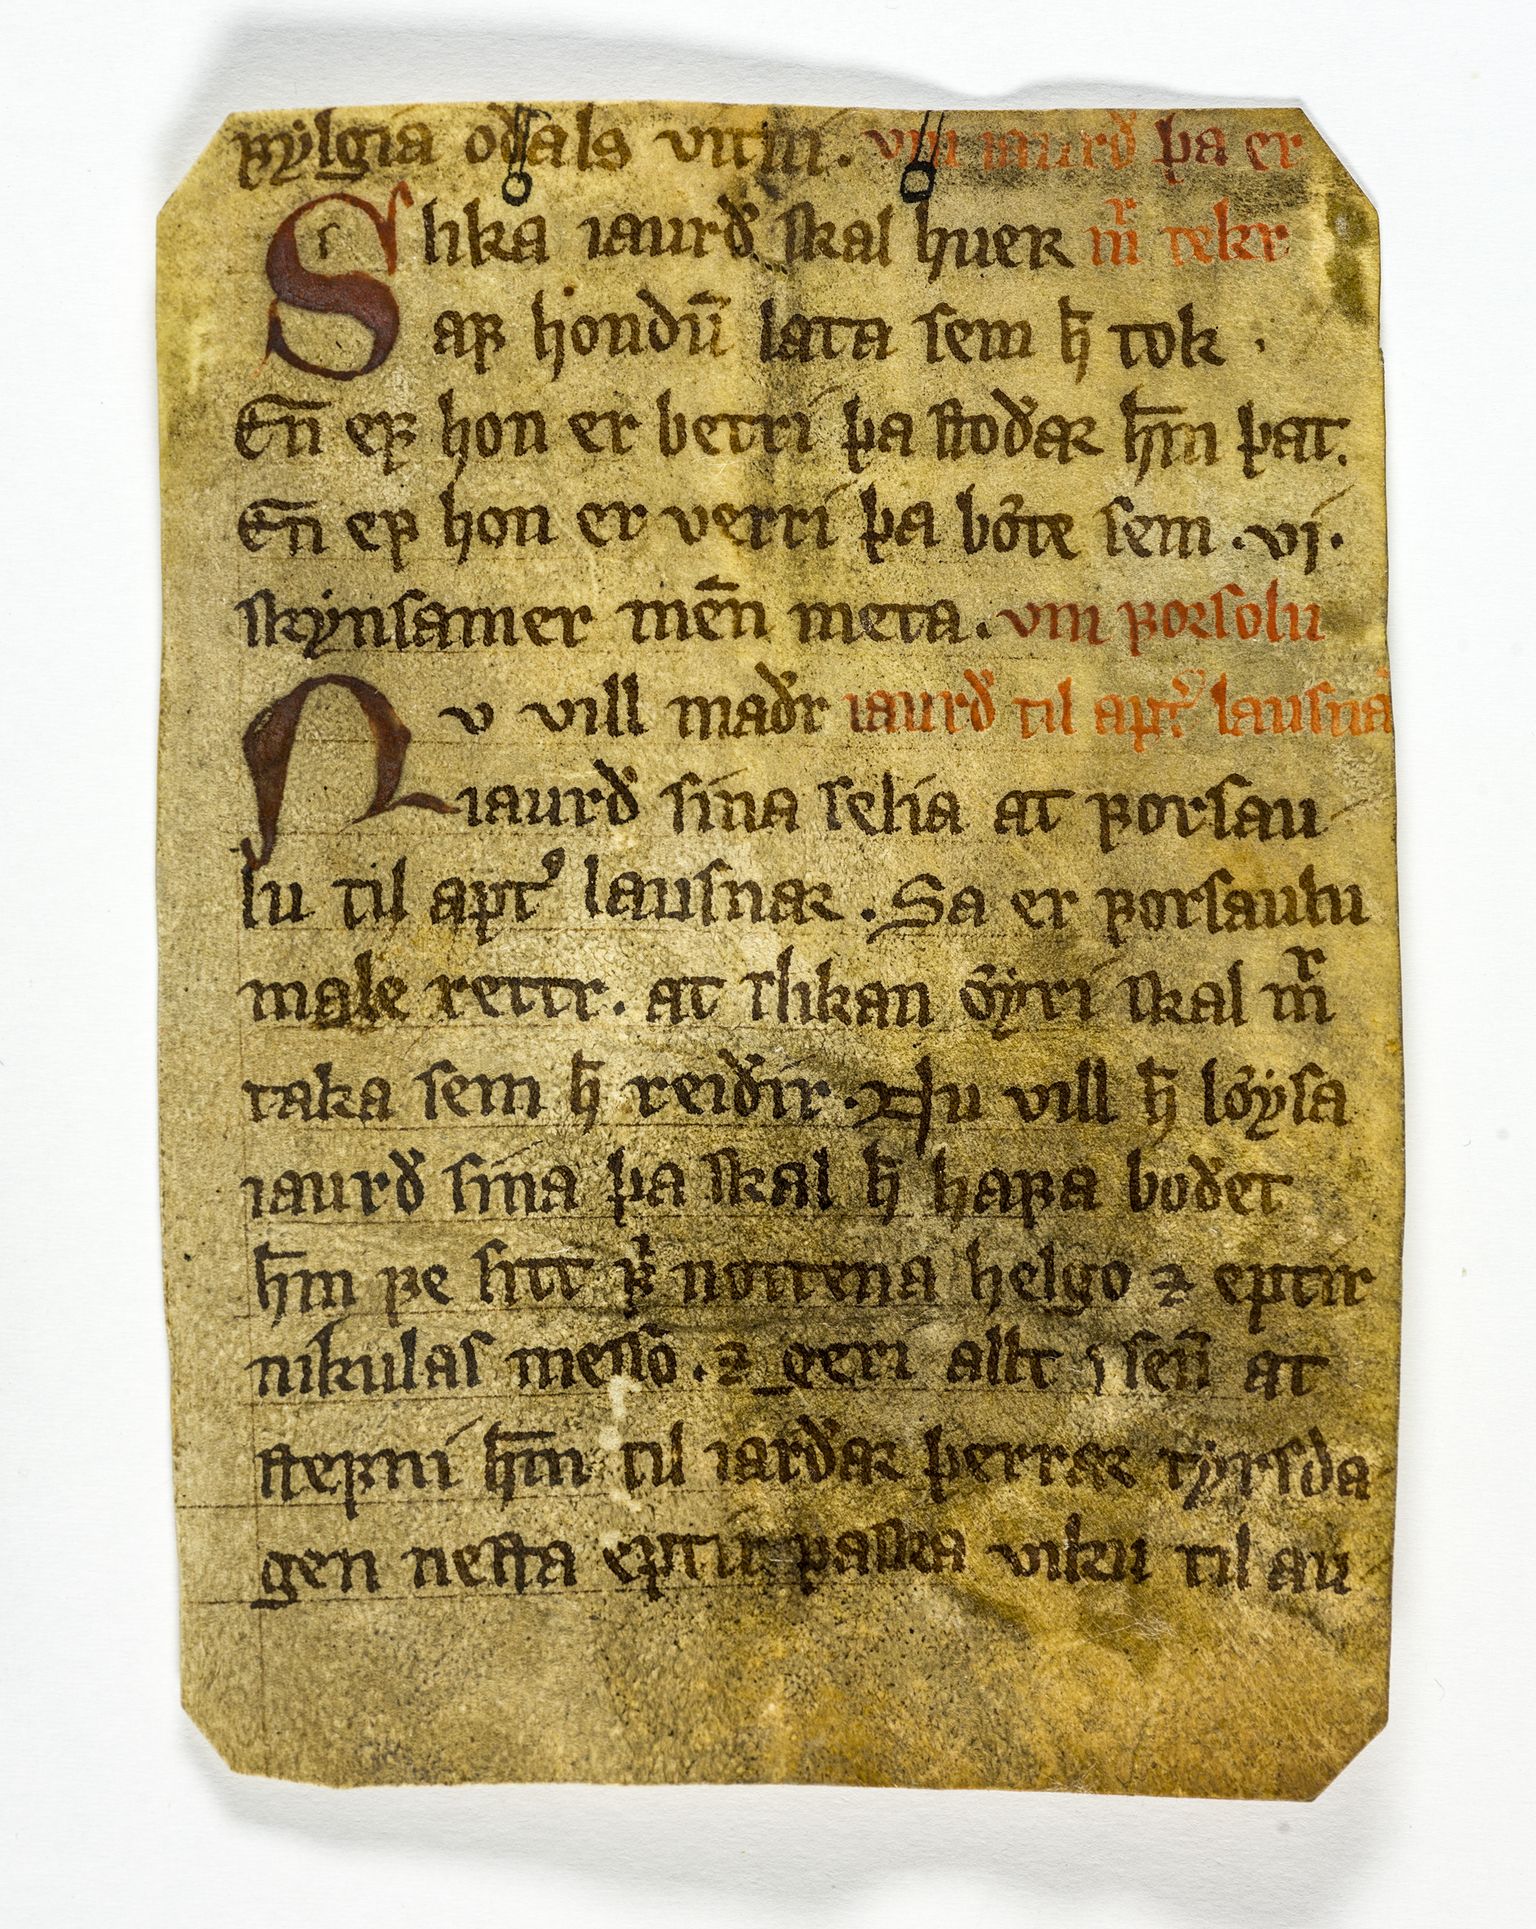 ꝼylgia oðals vitni. vm iaurð þa er
Slika iaurð skal huer mr tekr
aꝼ hondū lata sem h̄ tok .
En̄ eꝼ hon er betri þa stoðar h̄m þat.
En̄ eꝼ hon er verri þa bǿte sem .vj.
skynsamer men̄ meta. vm ꝼorsolu
Nv vill maðr iaurð til aꝼt͛ lausnar
iaurð sina selia at ꝼorsau
lu til aꝼt͛ lausnar. Sa er ꝼorsaulu
male rettr. at slikan ǿyri skal mr
taka sem h̄ reiðir. Nu vill h̄ lǿysa
iaurð sina þa skal h̄ haꝼa boðet
h̄m ꝼe sitt ꝼ͛ nottena helgo ⁊ eꝼtir
nikulas messo. ⁊ geri allt i sen̄ at
steꝼni h̄m til iarðar þerrar tyrsda
gen nesta eꝼtir paska viku til au